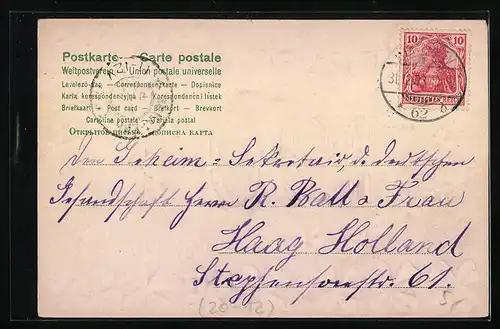 Postkarte — Carte postale
Weltpostverein — Union postale universelle
Levelező-Lap — Correspondenzkarte — Dopisnice
Karta korespondencyjna — Korespondenční lístek
Briefkaart — Post card — Brefkort — Brevkort
Cartolina postale — Tarjeta postal
Открытое письмо — Дописна карта
10 10
DEUTSCHES REICH
62
Dem Geheim-Sekretair d. deutschen
Gesandschaft Herrn R. Ball & Frau
Haag Holland
Stephensonstr. 61.
(20-12)